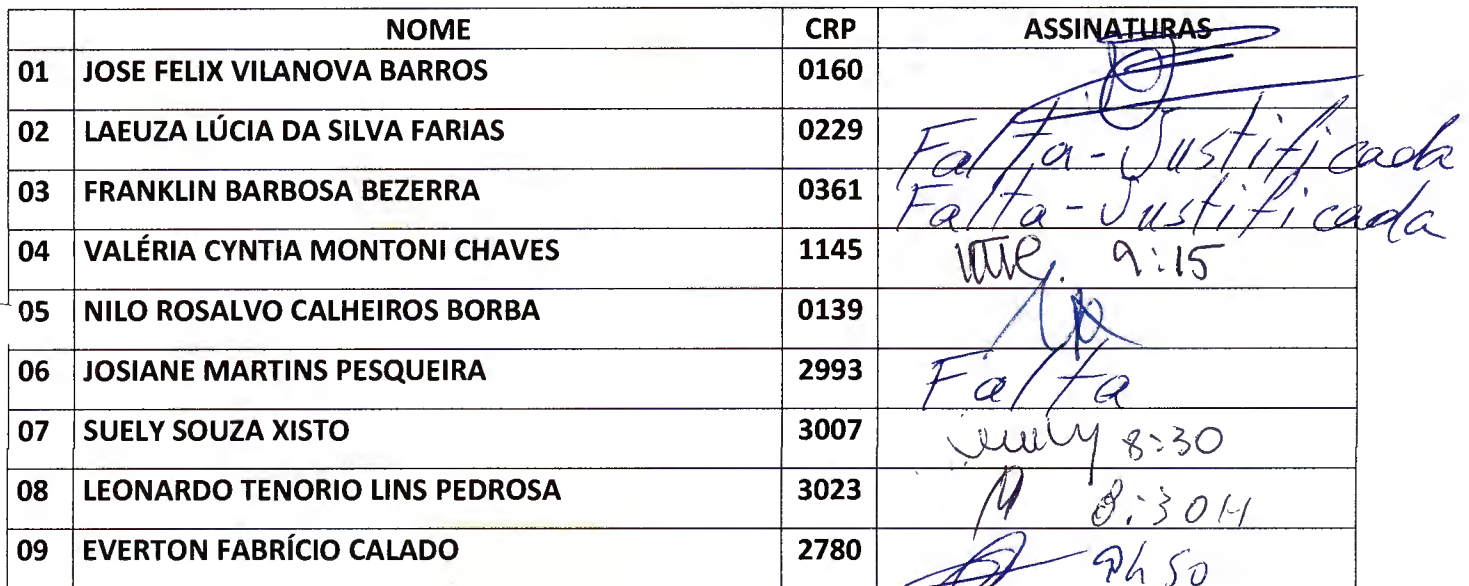 NOME CRP ASSINATURAS
01 JOSE FELIX VILANOVA BARROS 0160
02 LAEUZA LÚCIA DA SILVA FARIAS 0229 Falta-Justificada
03 FRANKLIN BARBOSA BEZERRA 0361 Falta-Justificada
04 VALÉRIA CYNTIA MONTONI CHAVES 1145 9:15
05 NILO ROSALVO CALHEIROS BORBA 0139
06 JOSIANE MARTINS PESQUEIRA 2993 Falta
07 SUELY SOUZA XISTO 3007 8:30
08 LEONARDO TENORIO LINS PEDROSA 3023 8:30H
09 EVERTON FABRÍCIO CALADO 2780